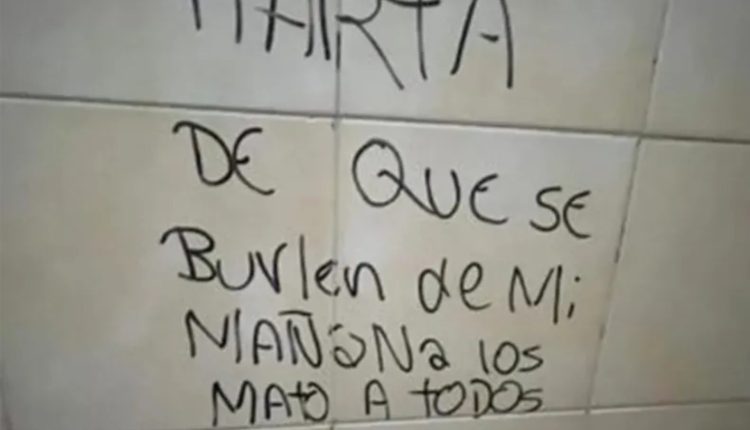 HARTA
DE QUE SE
Burlen de Mi
MAÑaNa los
MAto A toDOS